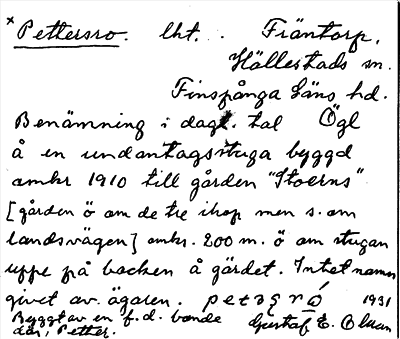 × Pettersro. lht. . Fräntorp,
Hällestads sn.
Finspånga läns hd.
Benämning i dagl. tal Ögl
å en undantagsstuga byggd
omkr 1910 till gården "Stoerns"
[gården ö om de tre ihop men s. om
landsvägen] omkr. 200 m. ö om stugan
uppe på backen å gärdet. Intet namn
givet av ägaren. petəʂró 1931
Byggt av en f.d. bonde Gustaf E. Olsson
där, Petter.